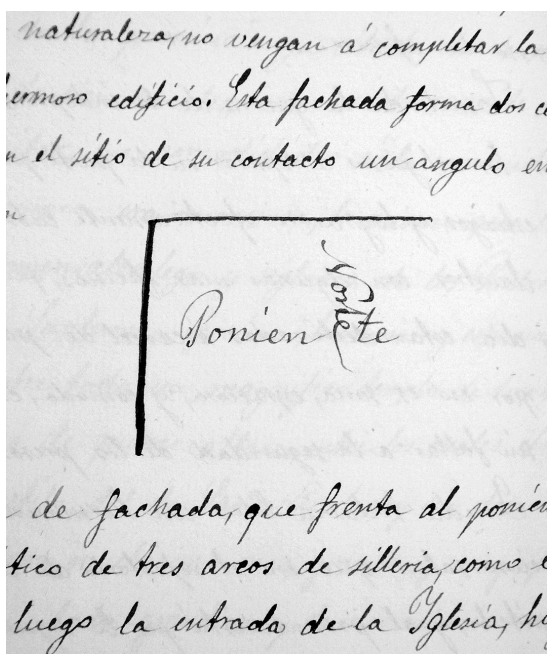 naturaleza, no vengan á completar la
hermoso edificio. Esta fachada forma dos
el sitio de su contacto un angulo en
Norte
Poniente
de fachada, que frenta al ponien
tico de tres arcos de silleria, como
luego la entrada de la Yglesia,